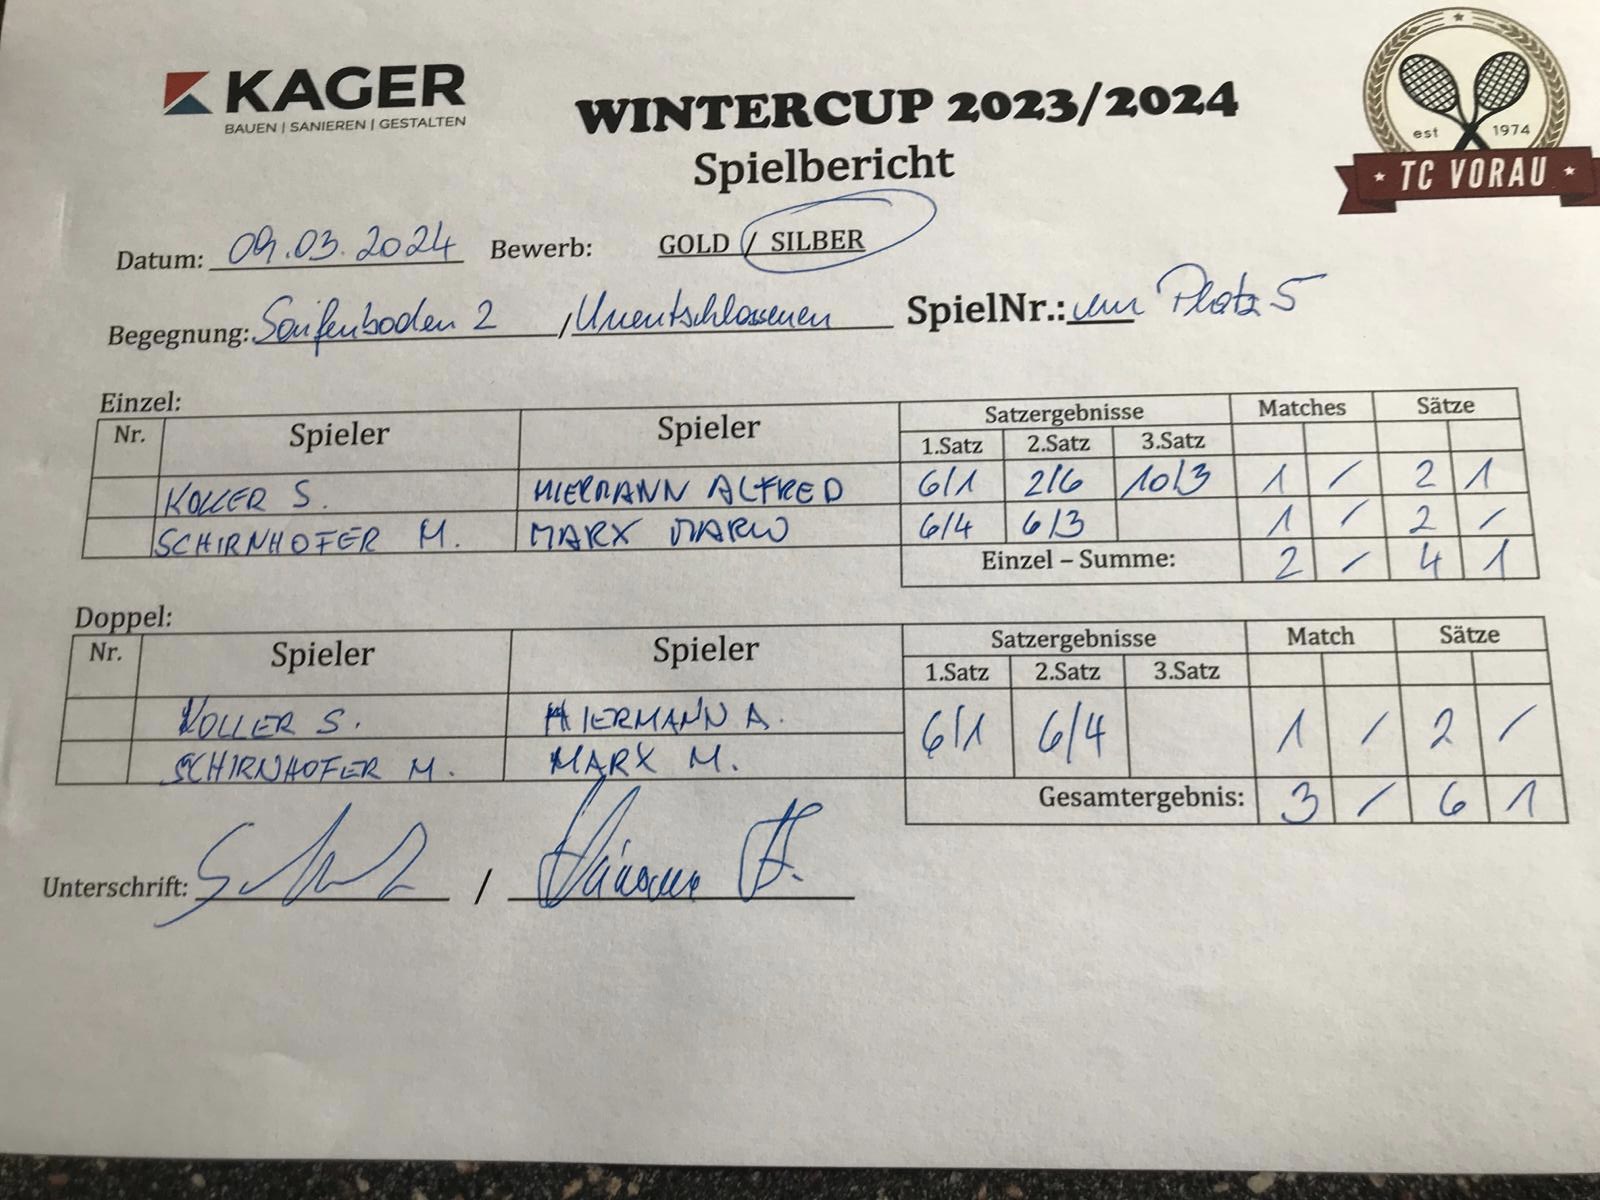 KAGER
BAUEN | SANIEREN | GESTALTEN
WINTERCUP 2023/2024
Spielbericht
est 1974
TC VORAU
Datum: 09.03.2024 Bewerb: GOLD / SILBER
Begegnung: Saifenboden 2 / Unentschlossenen SpielNr.: um Platz 5
Einzel:
Nr. Spieler Spieler Satzergebnisse Matches Sätze
1.Satz 2.Satz 3.Satz
KOLLER S. HIERMANN ALFRED 6/1 2/6 10/3 1 / 2 1
SCHIRNHOFER M. MARX MARIO 6/4 6/3 1 / 2 /
Einzel – Summe: 2 / 4 1
Doppel:
Nr. Spieler Spieler Satzergebnisse Match Sätze
1.Satz 2.Satz 3.Satz
KOLLER S. HIERMANN A. 6/1 6/4 1 / 2 /
SCHIRNHOFER M. MARX M.
Gesamtergebnis: 3 / 6 1
Unterschrift: /